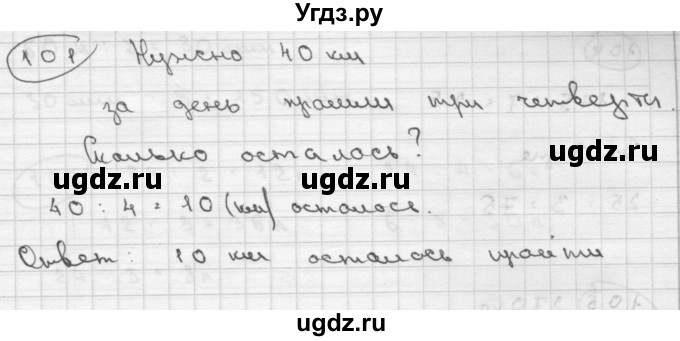 Угдз.ру
101 Нужно 40 км
за день прошли три четверти.
Сколько осталось?
ugdz.ru ugdz.ru ugdz.ru
40 : 4 = 10 (км) осталось.
Ответ: 10 км осталось пройти
ugdz.ru